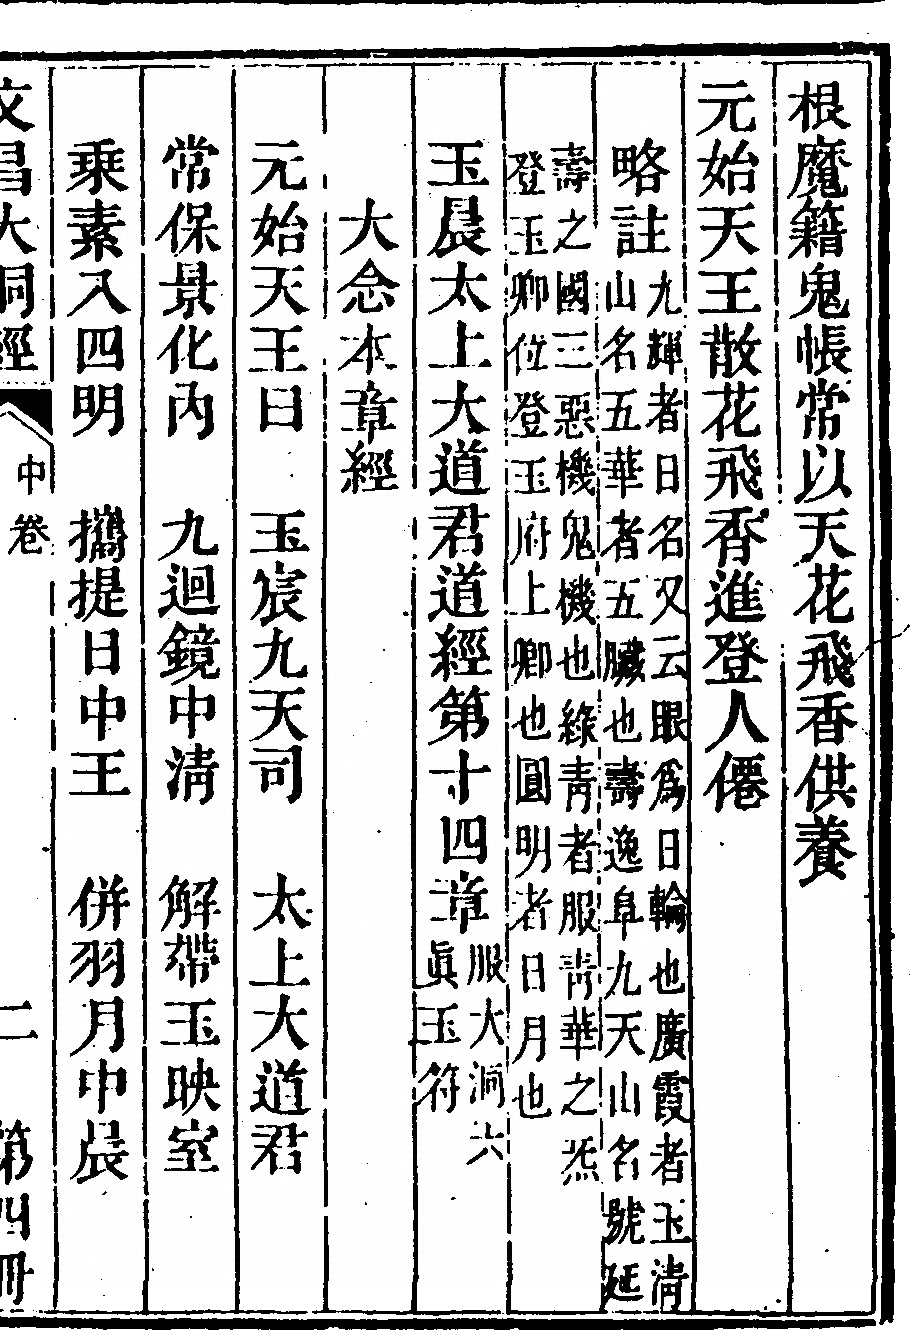 根魔籍鬼帳常以天花飛香供養
元始天王散花飛香進登人僊
略註九輝者日名又云眼爲日輪也廣霞者玉淸
山名五華者五臟也壽逸阜九天山名號延
壽之國三惡機鬼機也綠靑者服靑華之炁
登玉卿位登玉府上卿也圓明者日月也
玉晨太上大道君道經第十四章服大洞六
眞玉符
大念本章經
元始天王曰　玉宸九天司　太上大道君
常保景化內　九迴鏡中淸　解帶玉映室
乘素入四明　攜提日中王　併羽月中晨
文昌大洞經　中卷　二　第四冊